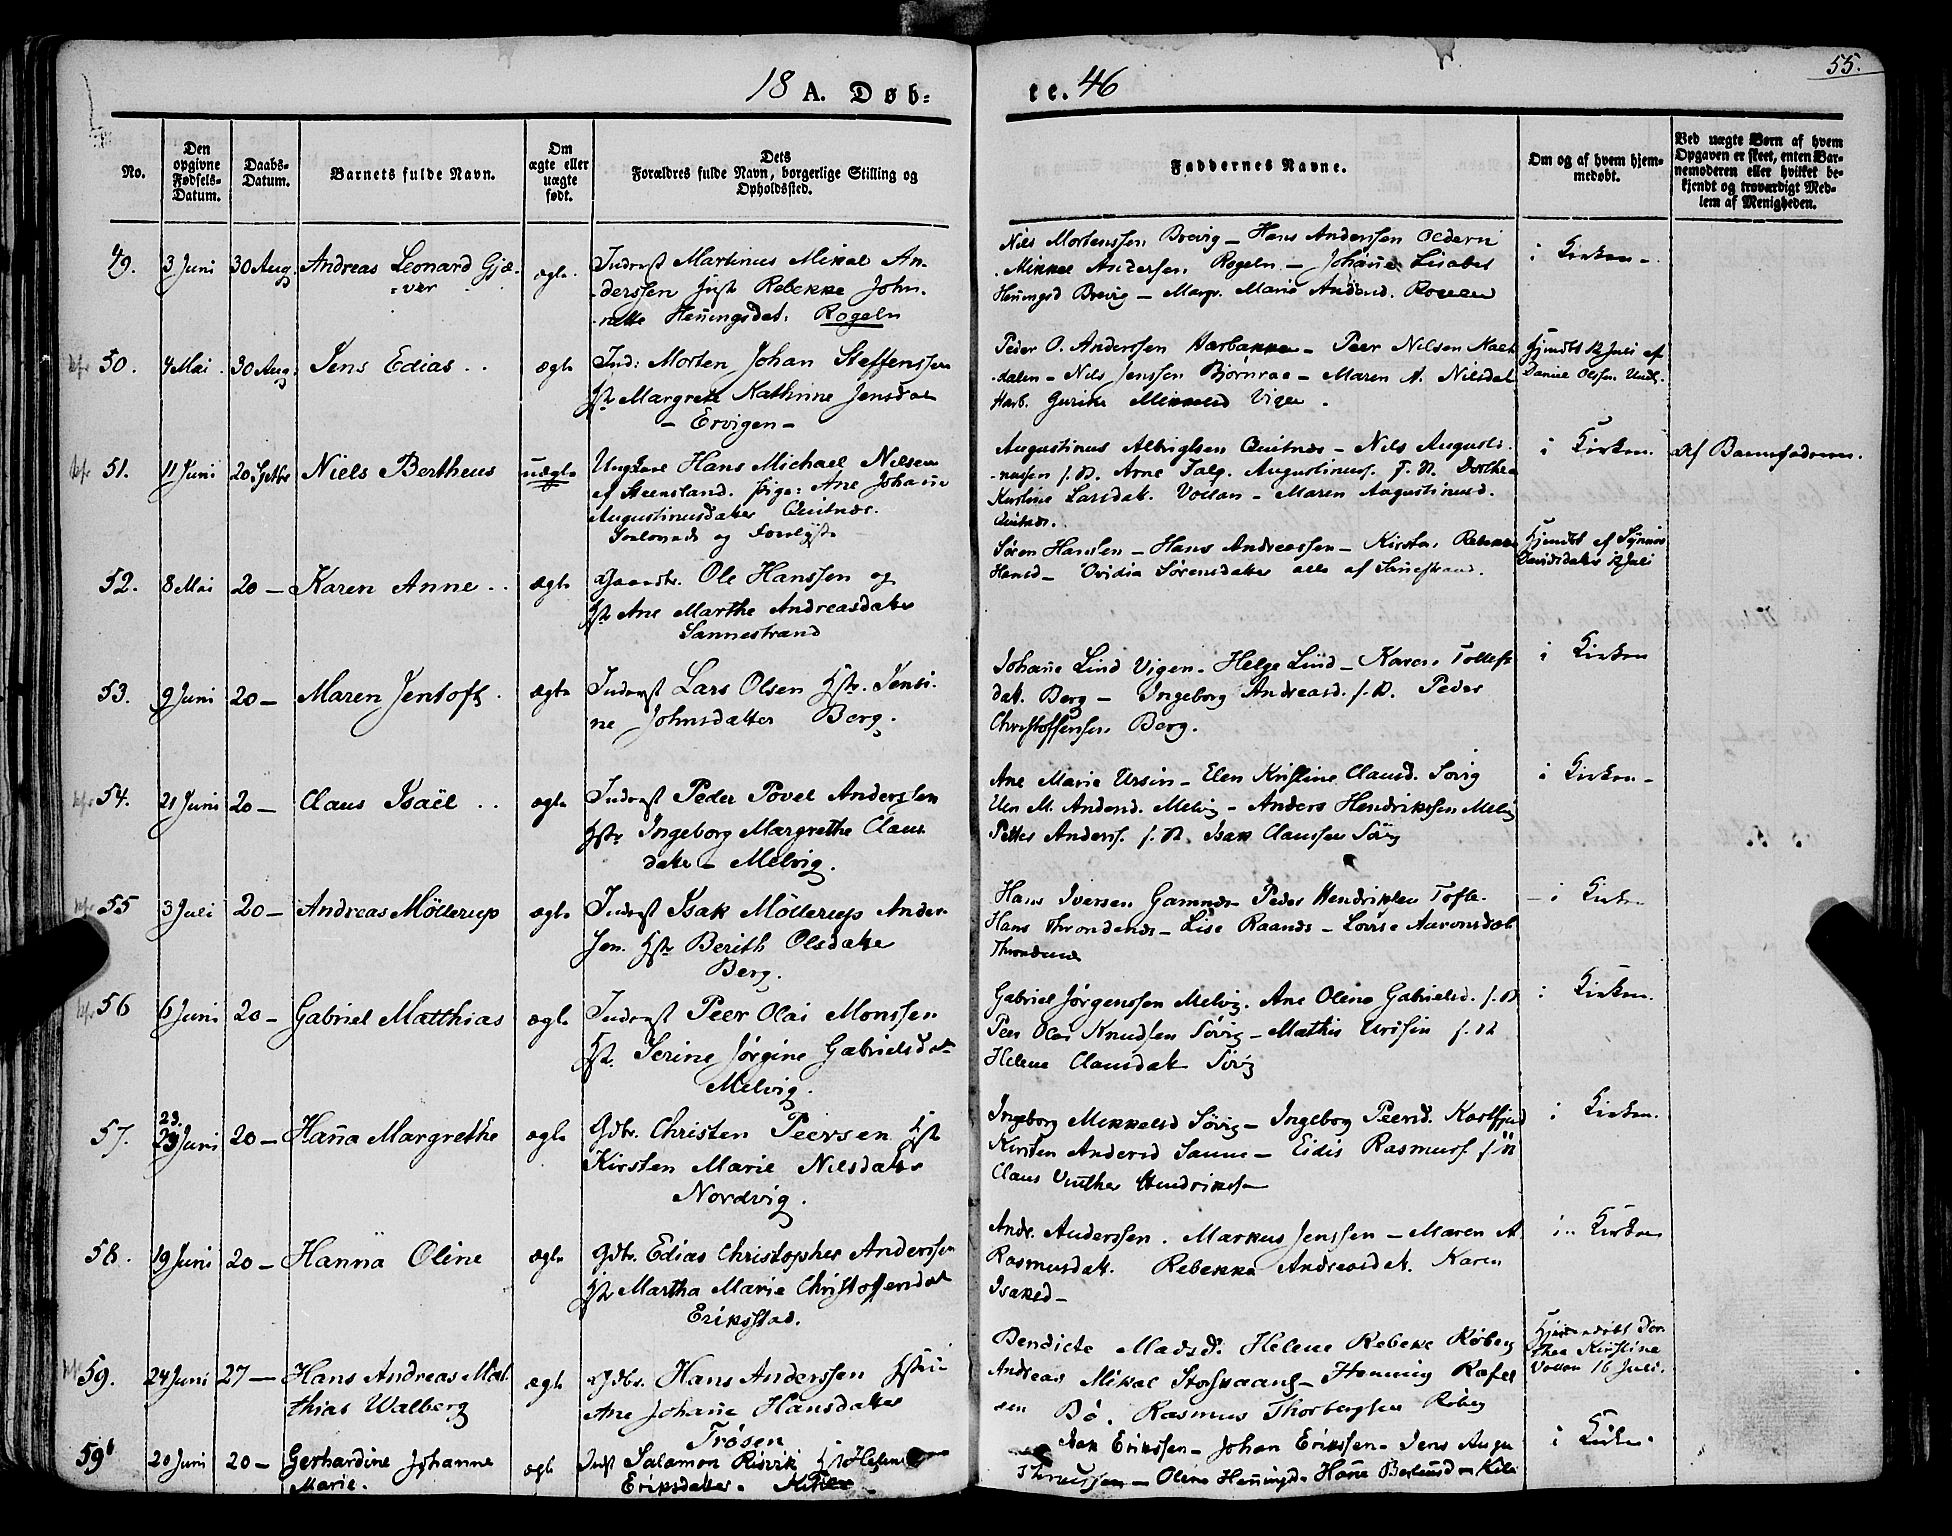 18 A. Døb=
te. 46
55.
No.
Den opgivne Fødsels-Datum.
Daabs-Datum.
Barnets fulde Navn.
Om ægte eller uægte født.
Dets Forældres fulde Navn, borgerlige Stilling og Opholdssted.
Faddernes Navne.
Om og af hvem hjemmedøbt.
Ved uægte Børn af hvem Opgaven er skeet, enten Barnemoderen eller hvilket bekjendt og troværdigt Medlem af Menigheden.
49. 3 Juni 30 Aug Andreas Leonard Gjæ- ægte Inderst Martinus Mikal An-
=vær -derssen Hust Rebekke John-
-nette Heñingsdat: Rogeln
Niels Mortenssen Brevig - Hans Anderssen Oldervi
Mikkel Andersen Rogeln - Johañe Lisabet
Heñingsd Brevig - Margr. Marie Andersd.
i Kirken -
50. 4 Mai 30 Aug: Jens Edias . . ægte Ind: Morten Johan Steffenssen
Hst Margrete Kathrine Jensdat
- Ervigen -
Peder O. Anderssen Harbakke - Peer Nilsen
-dalen - Nils Jenssen Bjørnraa - Maren A. Nilsdat
Harb. Gurine Mikkelsd Vigen .
Hjemdbt 12 Juli af
Daniel Olssen
51. 11 Juni 20 Septbr Niels Bertheus uægte Ungkarl Hans Michael Nilsen
af Steensland. Pige: Ane Johañe
Augustinusdatter Qvitnæs.
Augustinus Albrigtsen Qvitnæs - Nils Augusti-
-nussen f. N. Arne Augustinuss. f. N. Dorthea
Kirstine Larsdat. Vollan - Maren Augustinusd.
Qvitnæs.
i Kirken. af Barnefaderen.
52. 8 Mai 20 - Karen Anne . . ægte Gaardbr. Ole Hanssen og
Hst Ane Marthe Andreasdatter
Sannestrand
Søren Hansen - Hans Andreassen - Kirsten, Rebekka
Hansd - Ovidia Sørensdatter alle af Sañestrand.
Hjemdbt af
Davidsdatter 12 Juli
53. 9 Juni 20 - Maren Jentoft . ægte Inderst Lars Olsen Hstr. Jensi-
ne Johnsdatter Berg.
Johañe Lind Vigen. Helge Lind - Karen Tollefs
dat. Berg - Ingeborg Andreasd. f. N. Peder
Christoffersen Berg.
i Kirken
54. 21 Juni 20 - Claus Isaël . . ægte Inderst Peder Povel Anderssen
Hstr Ingeborg Margrethe Claus
datter - Melvig.
Ane Marie Ursin - Elen Kristine Clausd. Sørig
Elen M. Andersd. Melvig - Anders Hendrikssen Melvig
Petter Anderss. f. N. Isak Claussen Sørig
i Kirken -
55 3 Juli 20 - Andreas Möllerup ægte Inderst Isak Möllerup Ander-
sen. Hstr Berith Olsdatter
Berg.
Hans Iversen Gamnes Peder Hendriksen Tofte.
Hans Throndenæs - Lise Raanes - Lovise Aaronsdat
Throndenæs
- i Kirken
56 6 Juni 20 - Gabriel Matthias ægte Inderst Peer Olai Monssen
Hst. Serine Jørgine Gabrielsdat
Melvig.
Gabriel Jørgenssen Melvig. Ane Oline Gabrielsd. f. N
Peer Olai Knudsen Sørig - Mathis Ursin f. N
Helene Clausdat Sørig
i Kirken.
57. 23. 23 Juni 20 - Haña Margrethe ægte Gdbr. Christen Peersen Hst
Kirsten Marie Nilsdatter
Nordvig.
Ingeborg Mikkelsd Sørig - Ingeborg Peersd. Kaltfjord
Kirsten Andersd Sanne - Eidis Rasmuss. f. N
Claus Vinther Hendrikss
i Kirken.
58. 19 Juni 20 - Hanna Oline ægte Gdbr. Edias Christopher Anderssen
Hst Martha Marie Christoffersdat
Eriksstad.
Andr. Anderssen. Markus Jenssen - Maren A
Rasmusdat. Rebekka Andreasdat. Karen
Isaksd -
i . Kirken
59. 24 Juni 27 - Hans Andreas Mat- ægte Gdbr. Hans Anderssen Hstr
thias Walberg Ane Johañe Hansdatter
Trøsen
Bendicte Madsd. Helene Rebekke Røberg
Andreas Mikal - Henning Rafel
sen Bø. Rasmus Thorbergsen Røberg
Hjemmedøbt Dor-
thea Kirstine
Vollan 16 Juli.
59b 20 Juni 20 - Gerhardine Johanne ægte Indst Salamon Risvik Hst Helene
Marie. Eriksdatter.
Isak Erikssen - Johan Erikssen - Jens Augu
- Oline Heñingsd Hañe
i Kirken